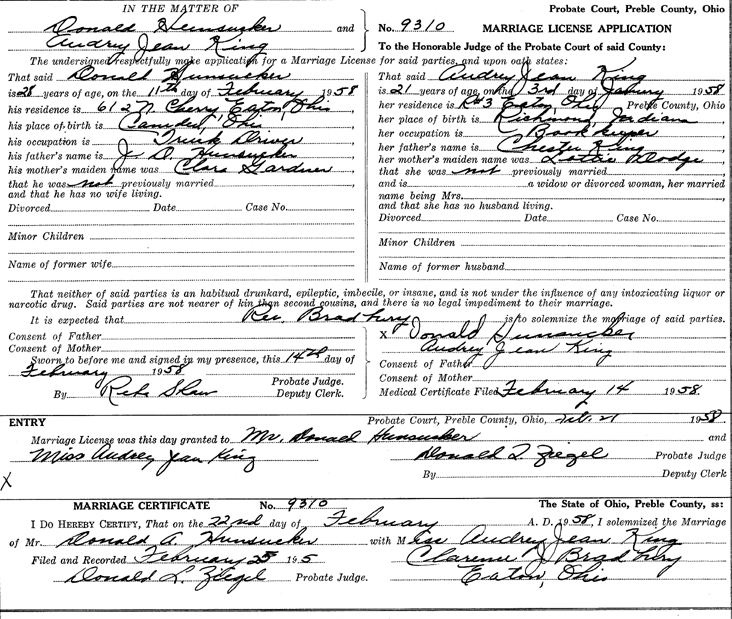 IN THE MATTER OF
Donald Hunsucker and
Audrey Jean King
Probate Court, Preble County, Ohio
No. 9310 MARRIAGE LICENSE APPLICATION
To the Honorable Judge of the Probate Court of said County:
The undersigned respectfully make application for a Marriage License for said parties, and upon oath states:
That said Donald Hunsucker
is 28 years of age, on the 11th day of February 1958
his residence is 612 N. Cherry Eaton, Ohio
his place of birth is Camden, Ohio
his occupation is Truck Driver
his father's name is J. D. Hunsucker
his mother's maiden name was Clara Gardner
that he was not previously married
and that he has no wife living.
Divorced Date Case No.
Minor Children
Name of former wife
That said Audrey Jean King
is 21 years of age, on the 3rd day of January 1958
her residence is R#3 Eaton, Ohio Preble County, Ohio
her place of birth is Richmond, Indiana
her occupation is Book keeper
her father's name is Chester King
her mother's maiden name was Lottie Dodge
that she was not previously married
and is a widow or divorced woman, her married
name being Mrs.
and that she has no husband living.
Divorced Date Case No.
Minor Children
Name of former husband
That neither of said parties is an habitual drunkard, epileptic, imbecile, or insane, and is not under the influence of any intoxicating liquor or
narcotic drug. Said parties are not nearer of kin than second cousins, and there is no legal impediment to their marriage.
It is expected that Rev. Bradbury is to solemnize the marriage of said parties.
Consent of Father
Consent of Mother
Sworn to before me and signed in my presence, this 14th day of
February 1958
Probate Judge.
By Reba Shaw Deputy Clerk.
X Donald Hunsucker
Audrey Jean King
Consent of Father
Consent of Mother
Medical Certificate Filed February 14 1958.
ENTRY Probate Court, Preble County, Ohio, Feb. 21 1958.
Marriage License was this day granted to Mr. Donald Hunsucker and
Miss Audrey Jean King Donald L. Ziegel Probate Judge
X By Deputy Clerk
MARRIAGE CERTIFICATE No. 9310 The State of Ohio, Preble County, ss:
I DO HEREBY CERTIFY, That on the 22nd day of February A. D. 1958, I solemnized the Marriage
of Mr. Donald A. Hunsucker with Miss Audrey Jean King
Filed and Recorded February 25 195 Clarence J. Bradbury
Donald L. Ziegel Probate Judge. Eaton, Ohio